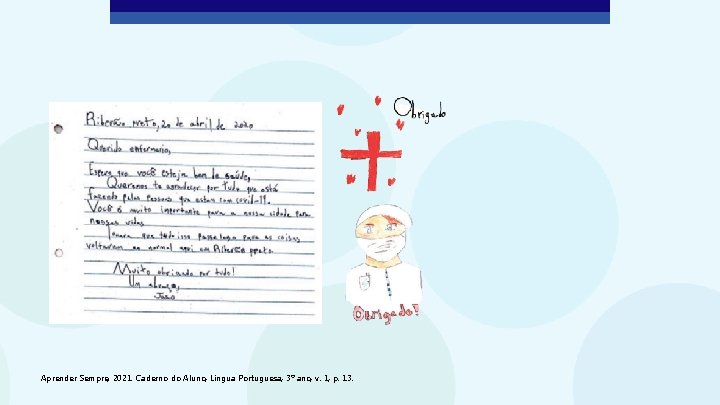 Ribeirão Preto, 20 de abril de 2020
Querido enfermeiro,
Espero que você esteja bem de saúde,
Queremos te agradecer por tudo que está
fazendo pelas pessoas que estam com covid-19.
Você é muito importante para a nossa cidade para
nossas vidas
Tomara que tudo isso passe logo para as coisas
voltarem ao normal aqui em Ribeirão preto.
Muito obrigado por tudo!
Um abraço,
João
Obrigado
Obrigado!
Aprender Sempre, 2021. Caderno do Aluno, Língua Portuguesa, 3º ano, v. 1, p. 13.